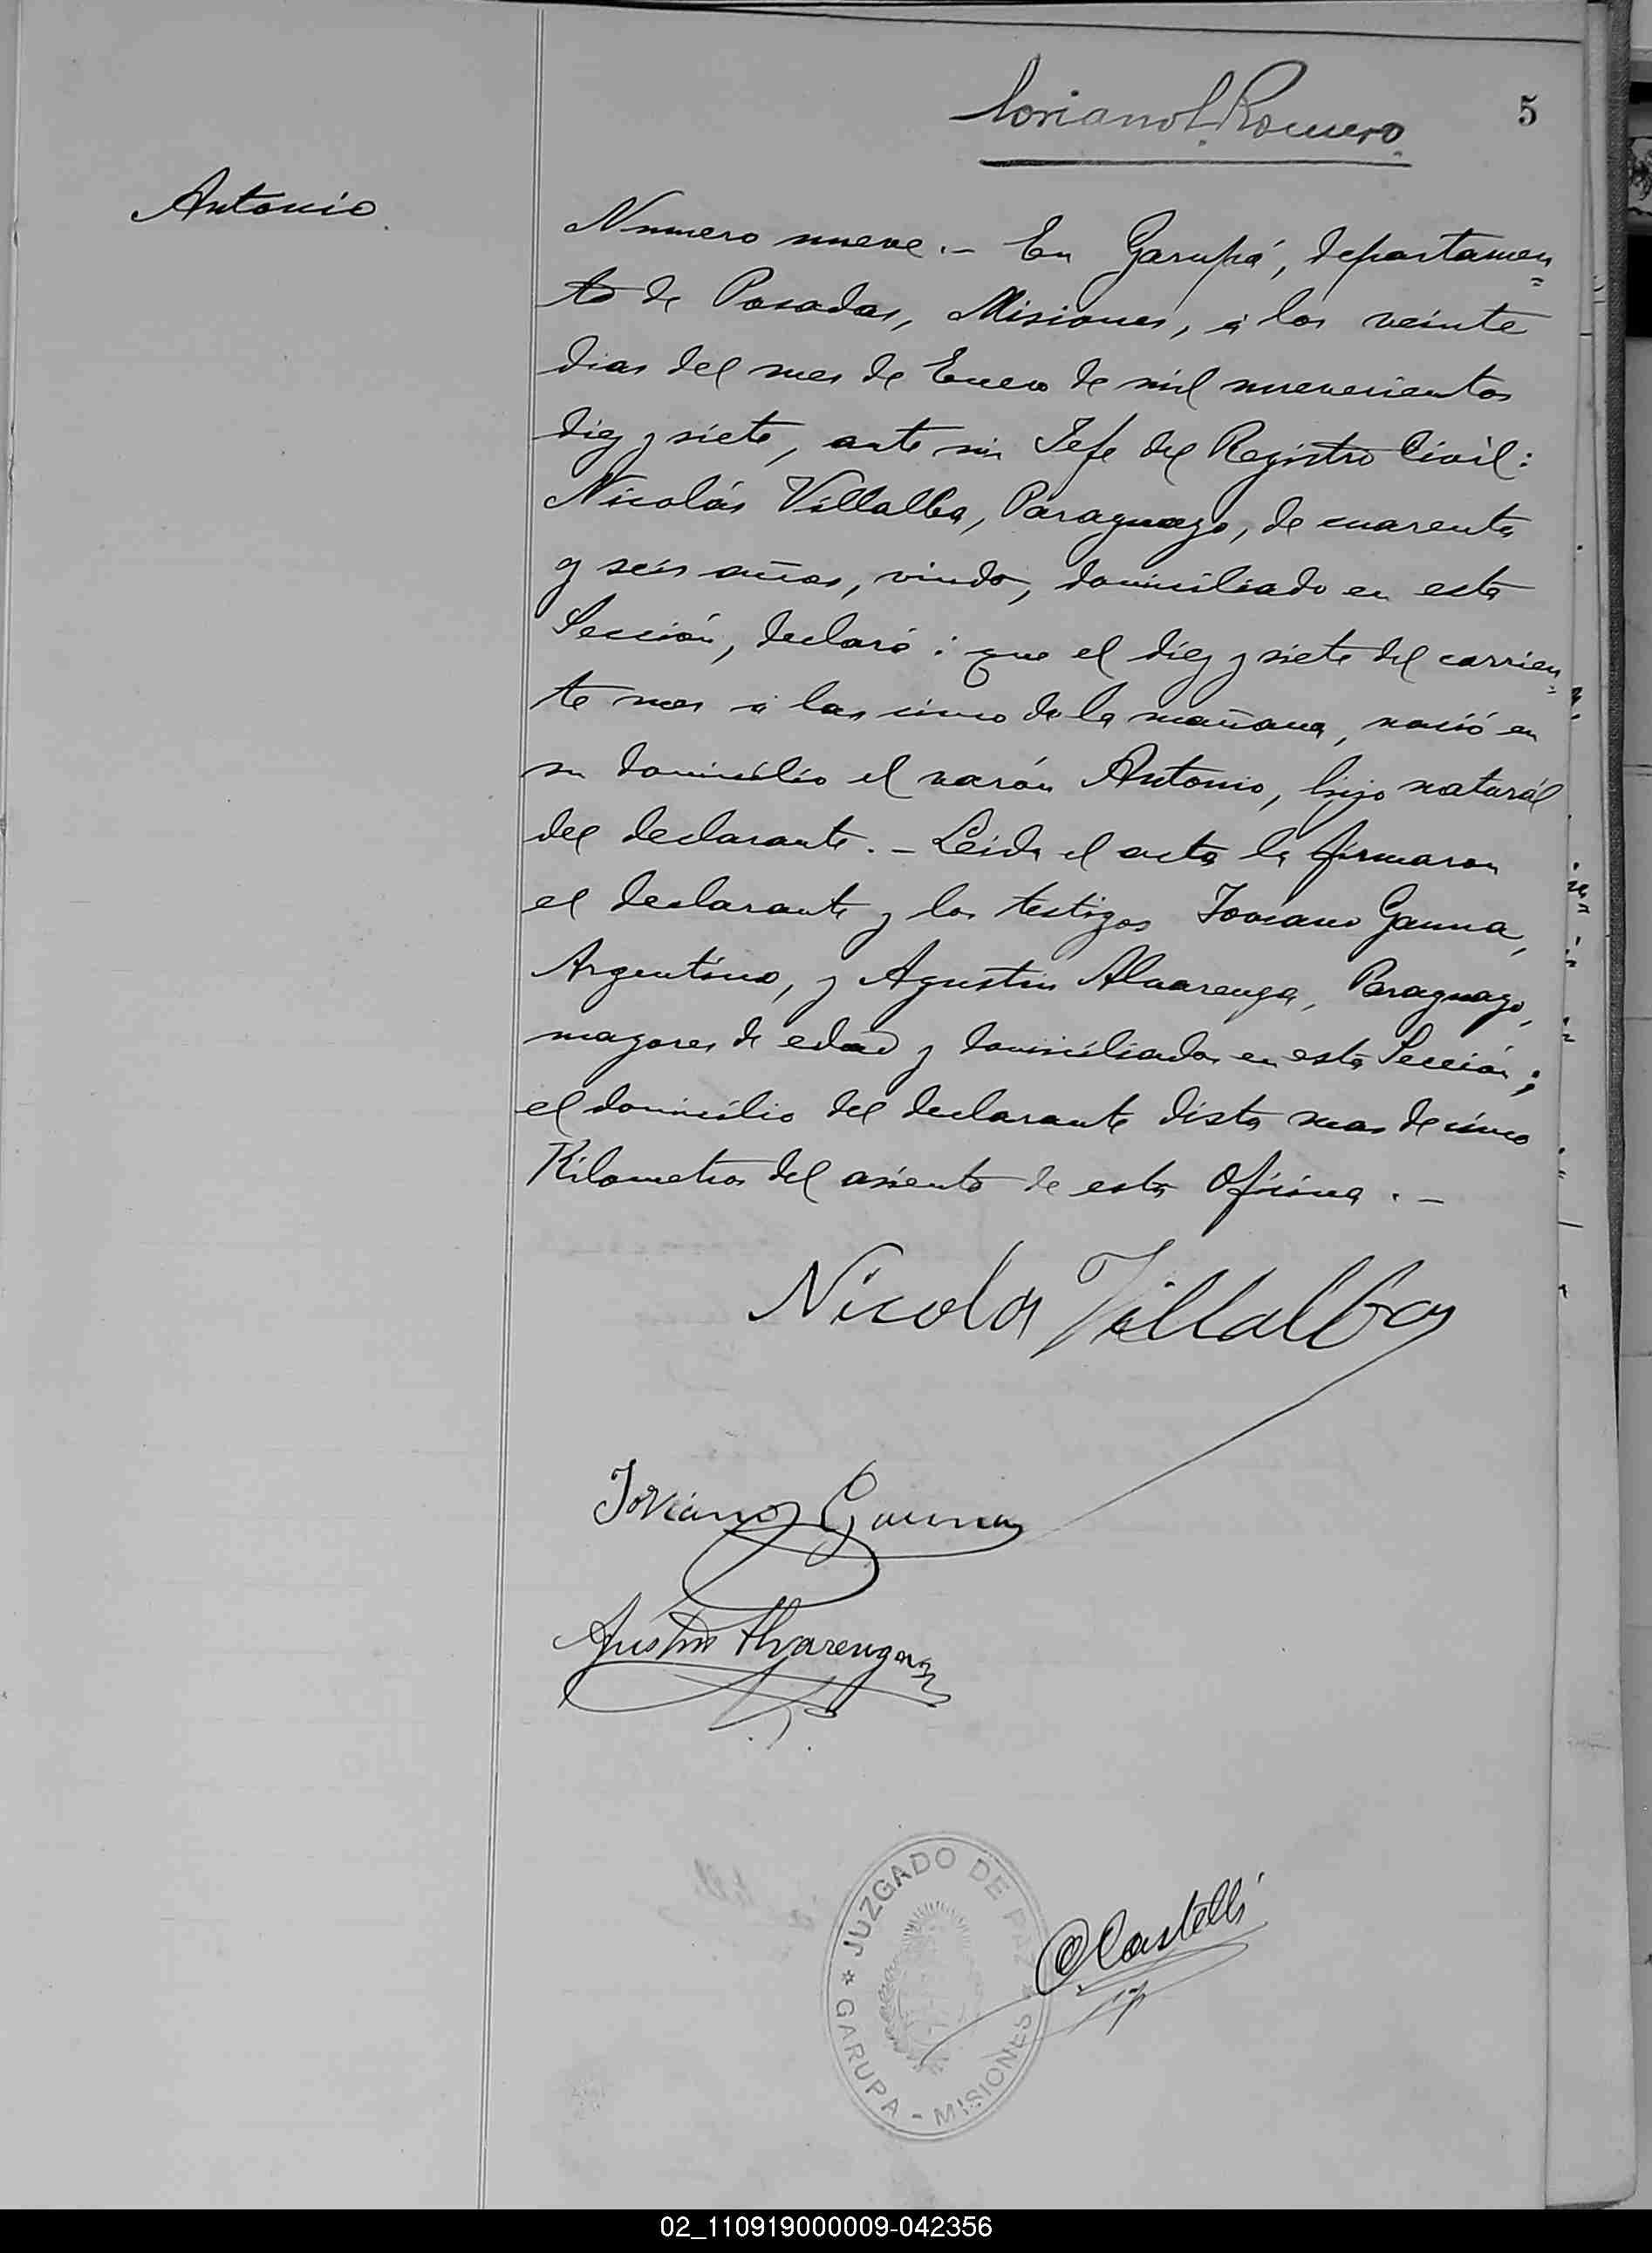 Soriano L. Romero.
5
Antonio.
Numero nueve.- En Garupá, departamen=
to de Posadas, Misiones, á los veinte
dias del mes de Enero de mil novecientos
diez y siete, ante mi Jefe del Registro Civil:
Nicolás Villalba, Paraguayo, de cuarenta
y seis años, viudo, domiciliado en esta
Sección, declaró: que el diez y siete del corrien=
te mes á las cinco de la mañana, nació en
su domicilio el varón Antonio, hijo naturál
del declarante.- Leida el acta la firmaron
el declarante y los testigos Joviano Gauna,
Argentino, y Agustin Alvarenga, Paraguayo,
mayores de edad y domiciliados en esta Sección;
el domicilio del declarante dista mas de cinco
Kilometros del asiento de esta Oficina.-
Nicolas Villalba
Joviano Gauna
Agustin Alvarenga
JUZGADO DE PAZ
* GARUPA - MISIONES *
Castelli
02_110919000009-042356